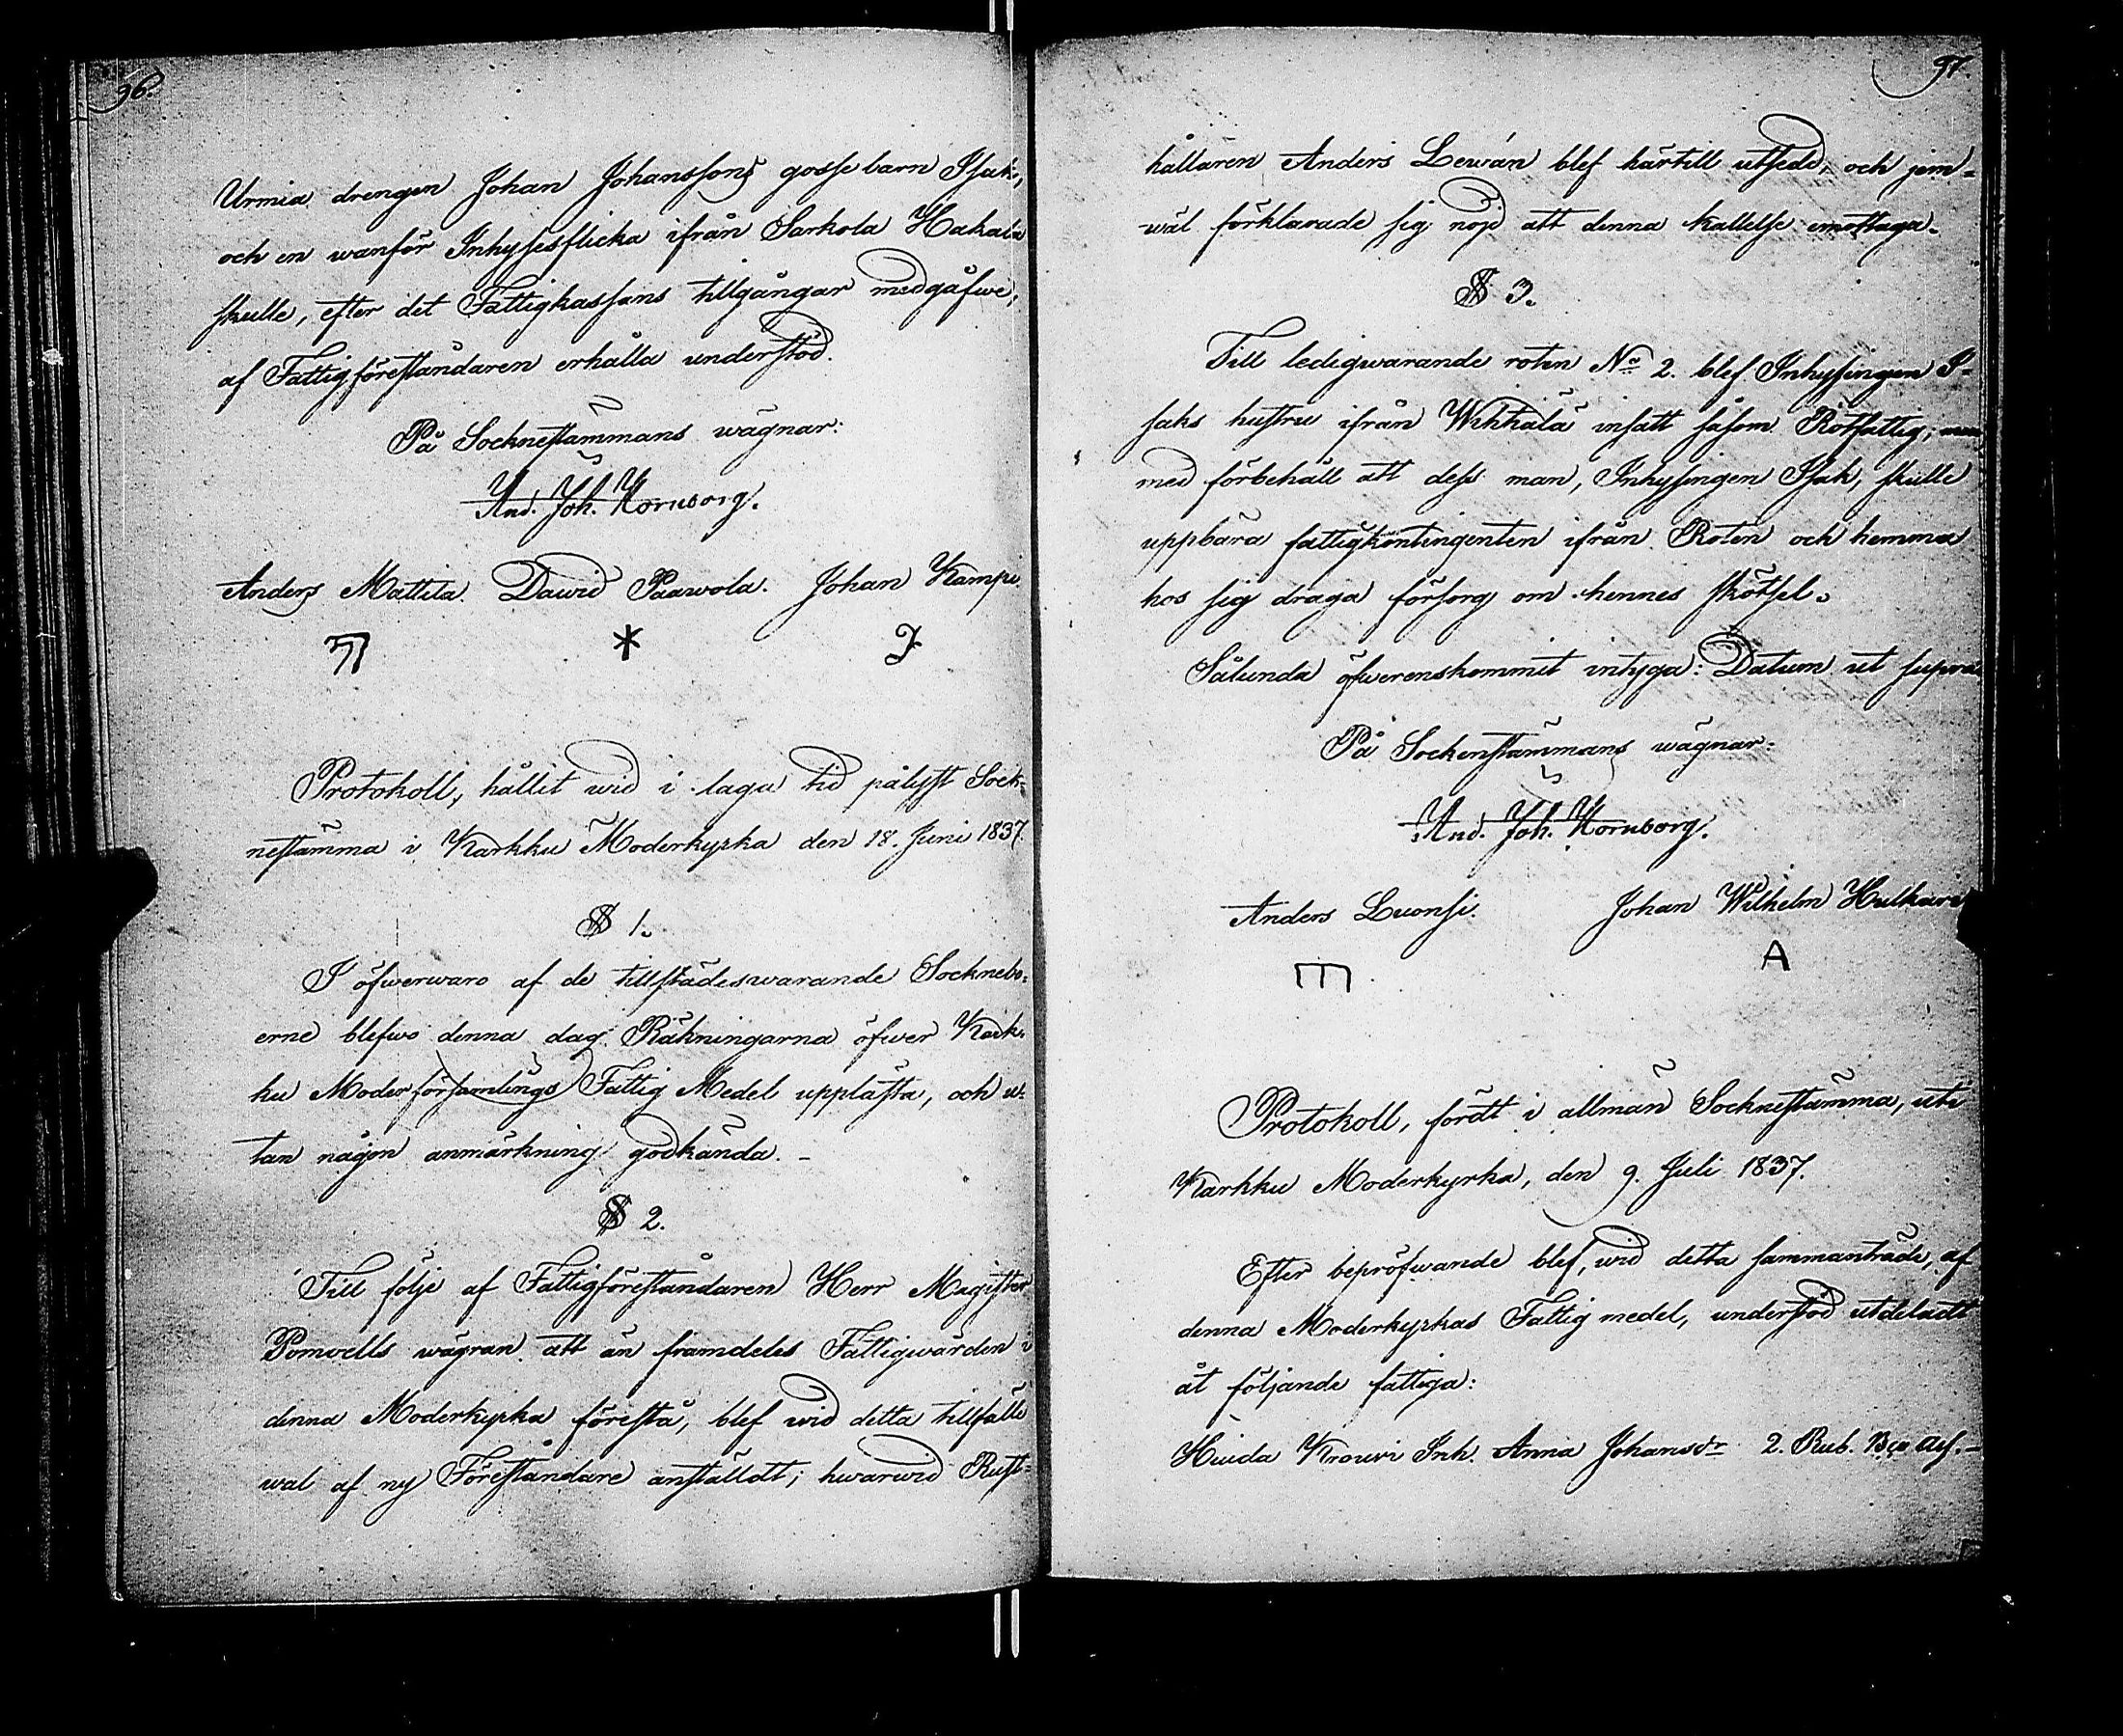 96.
Urmia drengen Johan Johanssons gossebarn Isak,
och en wanför Inhysesflicka ifrån Sarkola Hakala
skulle, efter det Fattigkassans tillgångar medgåfwe,
af Fattigföreståndaren erhålla understöd.
På Socknestämmans wägnar:
And. Joh. Hornborg.
Anders Mattila. Dawid Paawola. Johan Kampi
Protokoll, hållit wid i laga tid pålyst Sock-
nestämma i Karkku Moderkyrka den 18. Juni 1837.
§ 1.
I öfwerwaro af de tillstädeswarande Socknebo-
erne blefwo denna dag Räkningarna öfwer Kark-
ku Moderförsamlings Fattig Medel upplästa, och u-
tan någon anmärkning godkända. -
§ 2.
Till följe af Fattigföreståndaren Herr Magister
Pomoells wägran att än framdeles Fattigwården i
denna Moderkyrka förestå, blef wid detta tillfälle
wal af ny Föreståndare anställdt; hwarwid Rust-
97.
hållaren Anders Lewán blef härtill utsedd, och jem-
wäl förklarade sig nöjd att denna kallelse emottaga.
§ 3.
Till ledigwarande roten No 2. blef Inhysingen I-
saks hustru ifrån Wihkälä insatt såsom Rotfattig; men
med förbehåll att dess man, Inhysingen Isak, skulle
uppbära fattigkontingenten ifrån Roten och hemma
hos sig draga försorg om hennes skötsel.
Sålunda öfwerenskommit intyga: Datum ut supra
På Sockenstämmans wägnar:
And. Joh. Hornborg.
Anders Luonsi. Johan Wilhelm Hulkari
A
Protokoll, fördt i allmän Socknestämma, uti
Karkku Moderkyrka, den 9. Juli 1837.
Efter bepröfwande blef, wid detta sammanträde, af
denna Moderkyrkas Fattig medel, understöd utdeladt
åt följande fattiga:
Huida Krouwi Inh. Anna Johansdr 2. Rub. Bco Ass. -